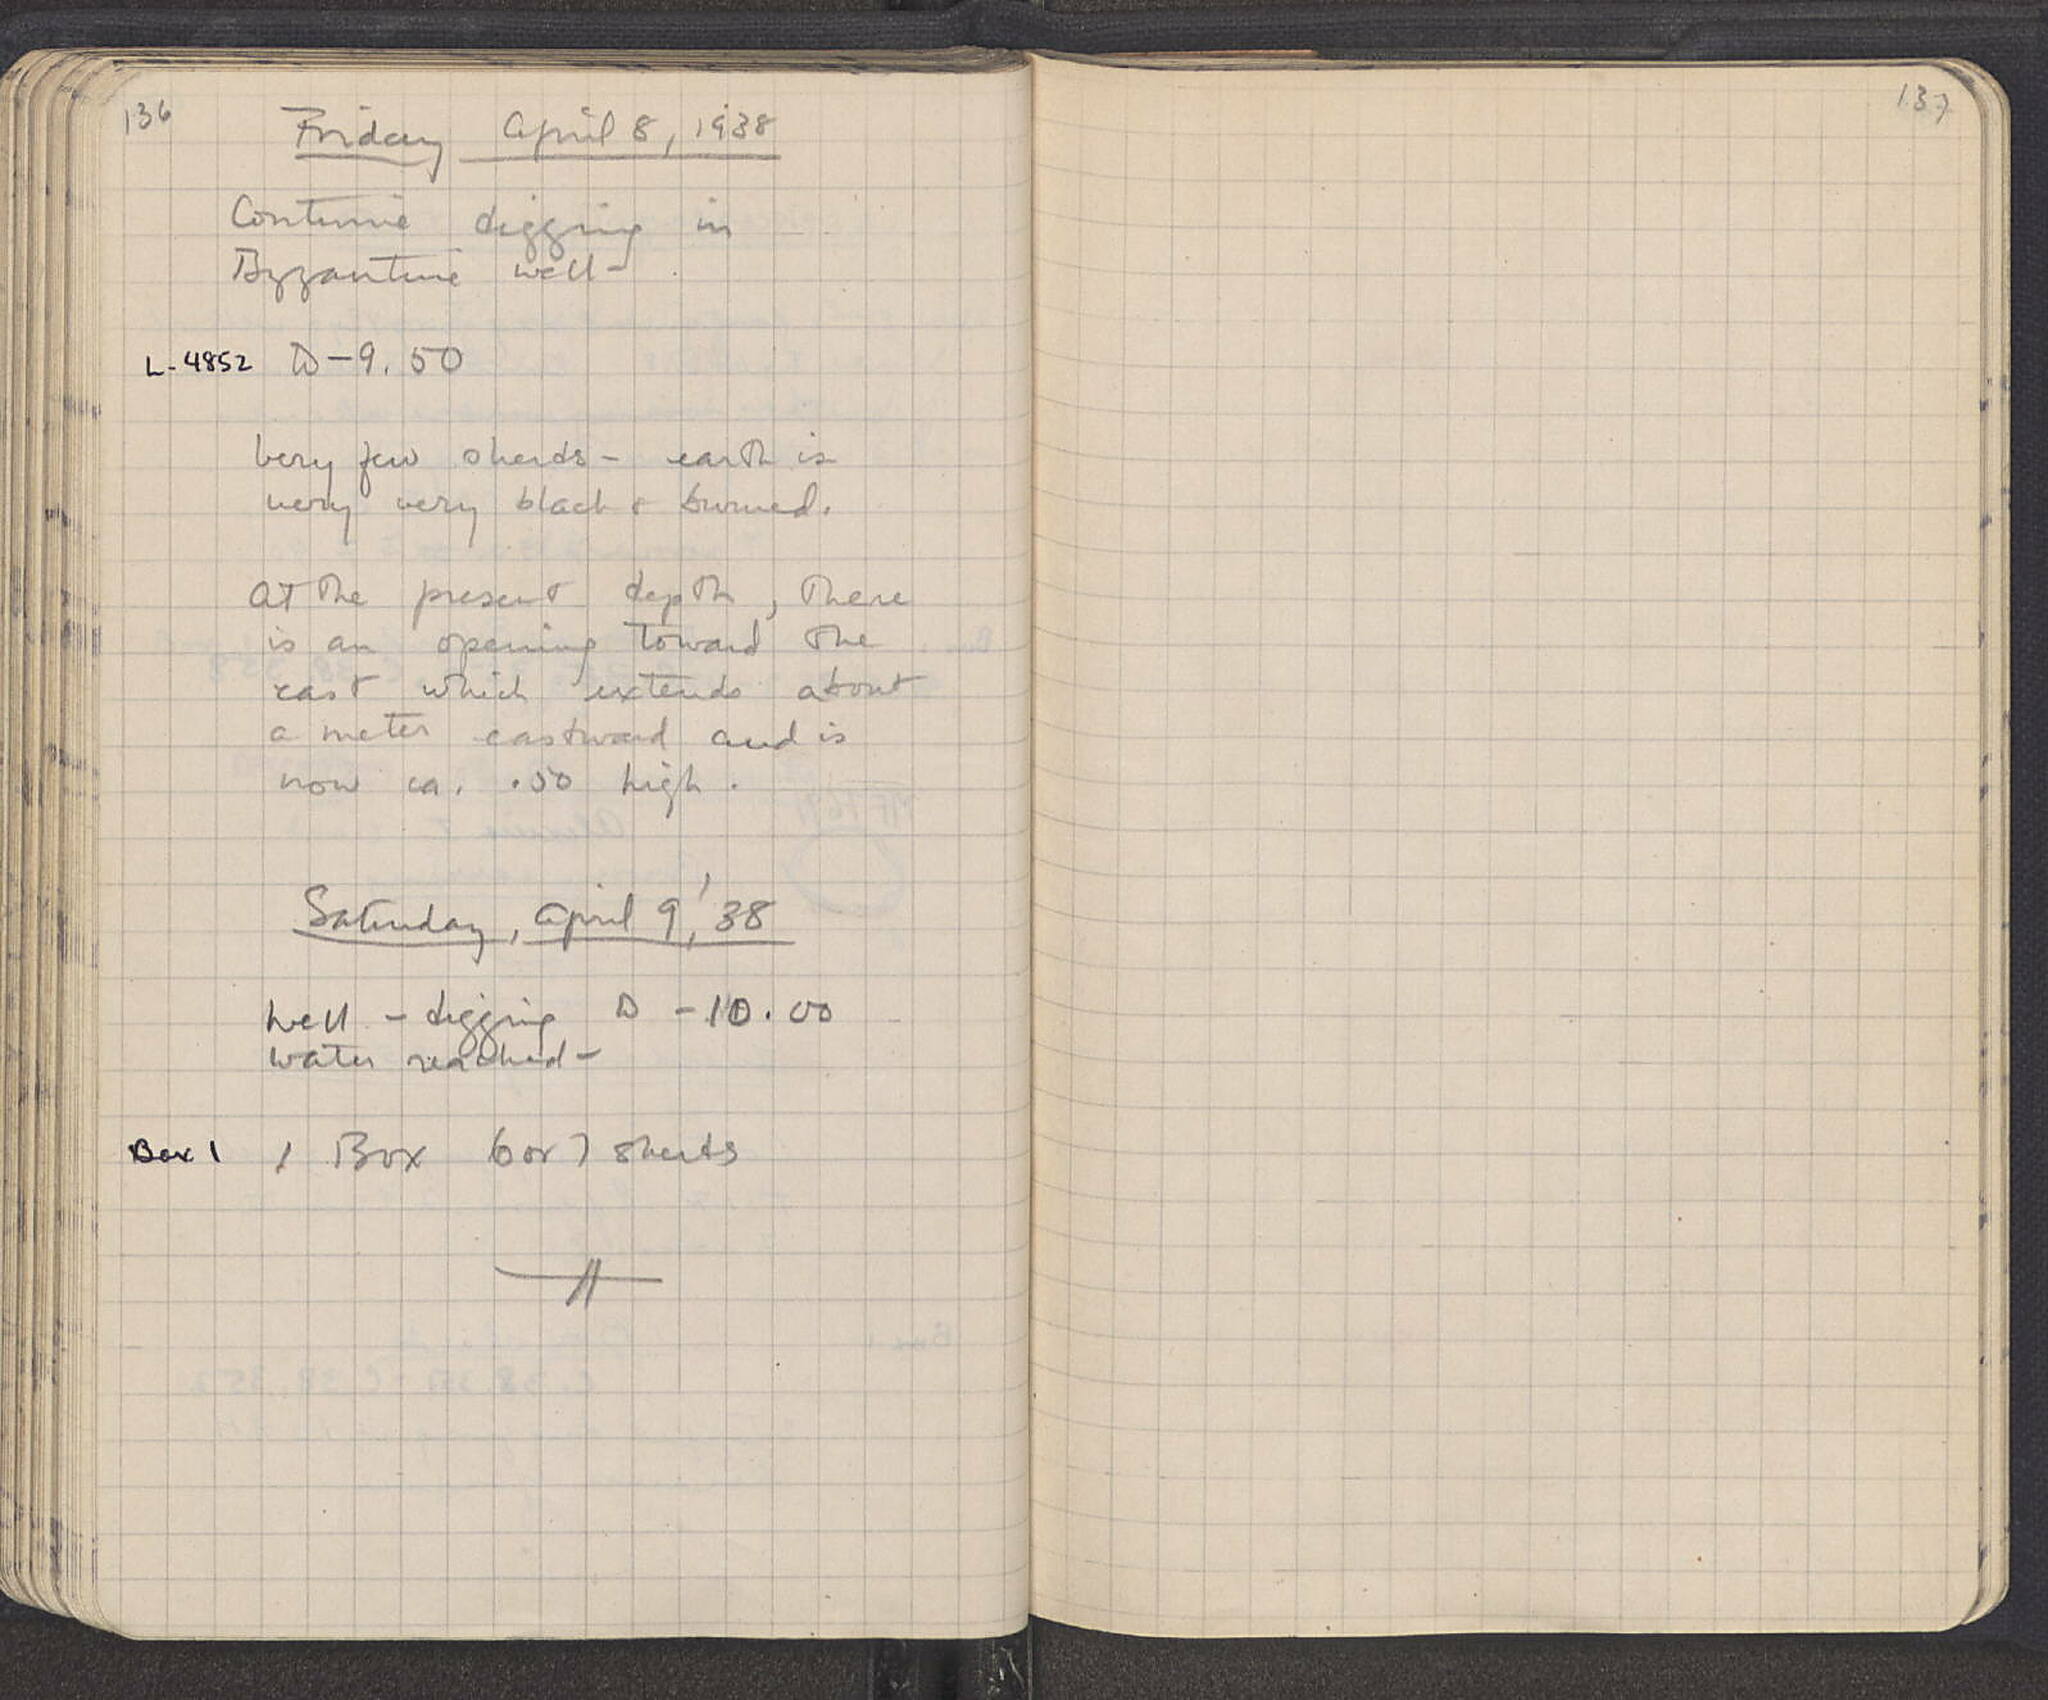 136
Friday April 8, 1938
Continue digging in
Byzantine well -
L-4852 D -9.50
Very few sherds - earth is
very very black & burned.
At the present depth, there
is an opening toward the
east which extends about
a meter eastward and is
now ca. .50 high.
Saturday, April 9, '38
Well - digging D -10.00
water reached -
Box 1 1 Box 6 or 7 sherds
137